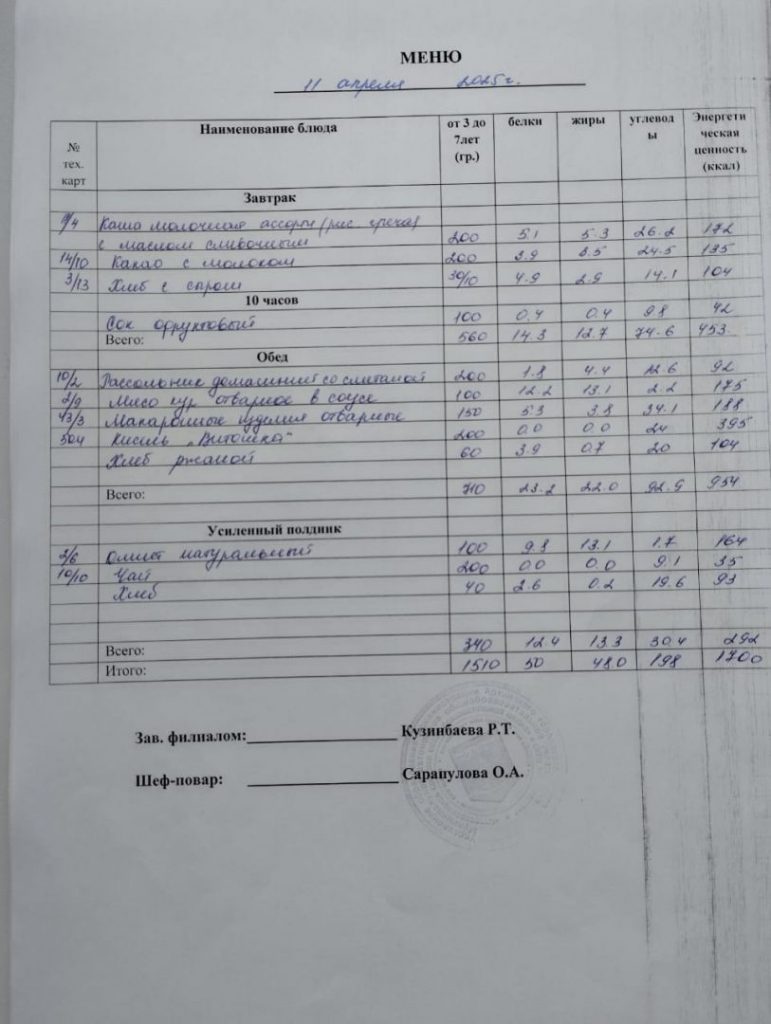 МЕНЮ
11 апреля 2025г.
№ тех. карт Наименование блюда от 3 до 7лет (гр.) белки жиры углевод ы Энергети ческая ценность (ккал)
Завтрак
9/4 Каша молочная ассорти (рис. греча)
с маслом сливочным 200 5.1 5.3 26.2 172
14/10 Какао с молоком 200 3.9 3.5 24.5 135
3/13 Хлеб с сыром 30/10 4.9 2.9 14.1 104
10 часов
Сок фруктовый 100 0.4 0.4 9.8 42
Всего: 560 14.3 12.7 74.6 453.
Обед
10/2 Рассольник домашний со сметаной 200 1.8 4.4 12.6 92
2/9 Мясо кур отварное в соусе 100 12.2 13.1 2.2 175
43/3 Макаронные изделия отварные 150 5.3 3.8 34.1 188
504 Кисель „Витошка" 200 0.0 0.0 24 395
Хлеб ржаной 60 3.9 0.7 20 104
Всего: 710 23.2 22.0 92.9 954
Усиленный полдник
2/6 Омлет натуральный 100 9.8 13.1 1.7 164
10/10 Чай 200 0.0 0.0 9.1 35
Хлеб 40 2.6 0.2 19.6 93
Всего: 340 12.4 13.3 30.4 292
Итого: 1510 50 48.0 198 1700
Зав. филиалом: Кузинбаева Р.Т.
Шеф-повар: Сарапулова О.А.